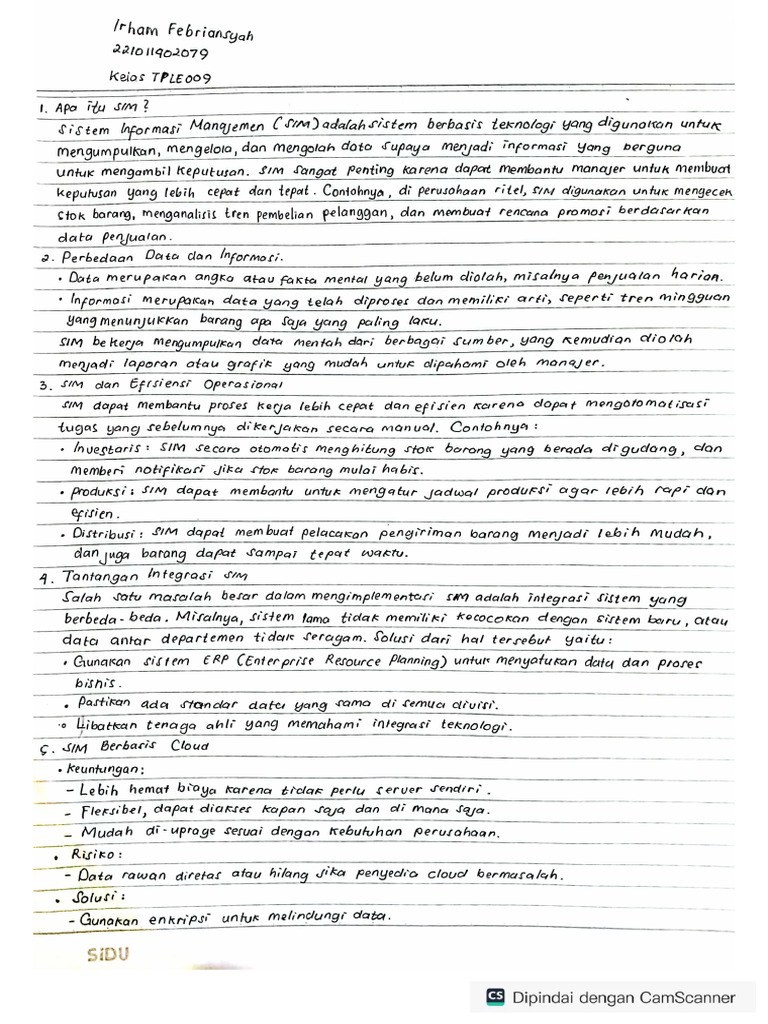 Irham Febriansyah
221011902079
Kelas TPLE009
1. Apa itu SIM ?
Sistem Informasi Manajemen (SIM) adalah sistem berbasis teknologi yang digunakan untuk
mengumpulkan, mengelola, dan mengolah data supaya menjadi informasi yang berguna
untuk mengambil keputusan. SIM sangat penting karena dapat membantu manajer untuk membuat
keputusan yang lebih cepat dan tepat. Contohnya, di perusahaan ritel, SIM digunakan untuk mengecek
stok barang, menganalisis tren pembelian pelanggan, dan membuat rencana promosi berdasarkan
data penjualan.
2. Perbedaan Data dan Informasi.
• Data merupakan angka atau fakta mental yang belum diolah, misalnya penjualan harian.
• Informasi merupakan data yang telah diproses dan memiliki arti, seperti tren mingguan
yang menunjukkan barang apa saja yang paling laku.
SIM bekerja mengumpulkan data mentah dari berbagai sumber, yang kemudian diolah
menjadi laporan atau grafik yang mudah untuk dipahami oleh manajer.
3. SIM dan Efisiensi Operasional
SIM dapat membantu proses kerja lebih cepat dan efisien karena dapat mengotomatisasi
tugas yang sebelumnya dikerjakan secara manual. Contohnya :
• Investaris : SIM secara otomatis menghitung stok barang yang berada digudang, dan
memberi notifikasi jika stok barang mulai habis.
• Produksi : SIM dapat membantu untuk mengatur jadwal produksi agar lebih rapi dan
efisien.
• Distribusi : SIM dapat membuat pelacakan pengiriman barang menjadi lebih mudah,
dan juga barang dapat sampai tepat waktu.
4. Tantangan Integrasi SIM
Salah satu masalah besar dalam mengimplementasi SIM adalah integrasi sistem yang
berbeda-beda. Misalnya, sistem lama tidak memiliki kococokan dengan sistem baru, atau
data antar departemen tidak seragam. Solusi dari hal tersebut yaitu :
• Gunakan sistem ERP (Enterprise Resource Planning) untuk menyatukan data dan proses
bisnis.
• Pastikan ada standar data yang sama di semua divisi.
• Libatkan tenaga ahli yang memahami integrasi teknologi.
5. SIM Berbasis Cloud
• Keuntungan :
- Lebih hemat biaya karena tidak perlu server sendiri.
- Fleksibel, dapat diakses kapan saja dan di mana saja.
- Mudah di-uprage sesuai dengan kebutuhan perusahaan.
• Risiko :
- Data rawan diretas atau hilang jika penyedia cloud bermasalah.
• Solusi :
- Gunakan enkripsi untuk melindungi data.
SiDU
CS Dipindai dengan CamScanner